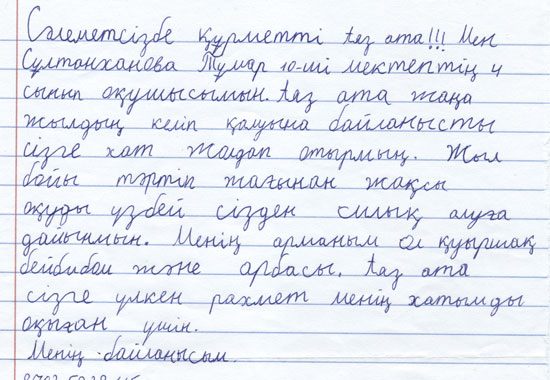 Сәлеметсізбе құрметті Аяз ата!!! Мен
Сұлтанханова Тұмар 10-ші мектептің 4
сынып оқушысымын. Аяз ата жаңа
жылдың келіп қалуына байланысты
сізге хат жаздап отырмың. Жыл
бойы тәртіп жағынан жақсы
оқуды үзбей сізден сылық алуға
дайынмын. Менің арманым ол қуыршақ
бейбибон және арбасы. Аяз ата
сізге үлкен рахмет менің хатымды
оқыған үшін.
Менің байланысым.